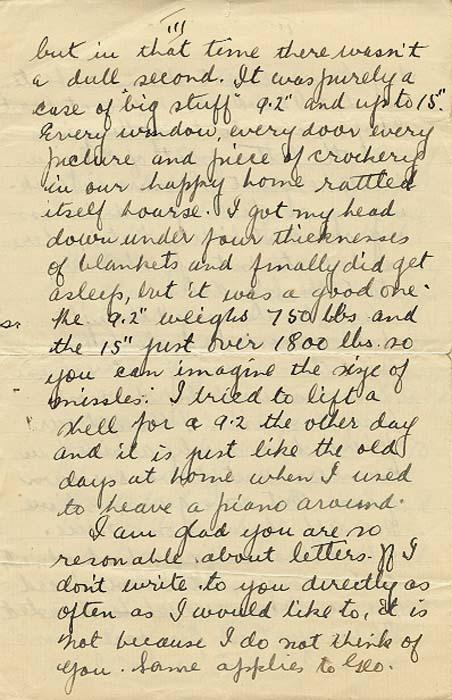 111
but in that time there wasn't
a dull second. It was purely a
case of "big stuff" 9.2" and up to 15".
Every window, every door every
picture and piece of crockery
in our happy home rattled
itself hoarse. I got my head
down under four thicknesses
of blankets and finally did get
asleep, but it was a good one.
The 9.2" weighs 750 lbs and
the 15" just over 1800 lbs. so
you can imagine the size of
missles. I tried to lift a
shell for a 9.2 the other day
and it is just like the old
days at home when I used
to heave a piano around.
I am glad you are so
resonable about letters. If I
don't write to you directly as
often as I would like to, it is
not because I do not think of
you. Same applies to Geo.